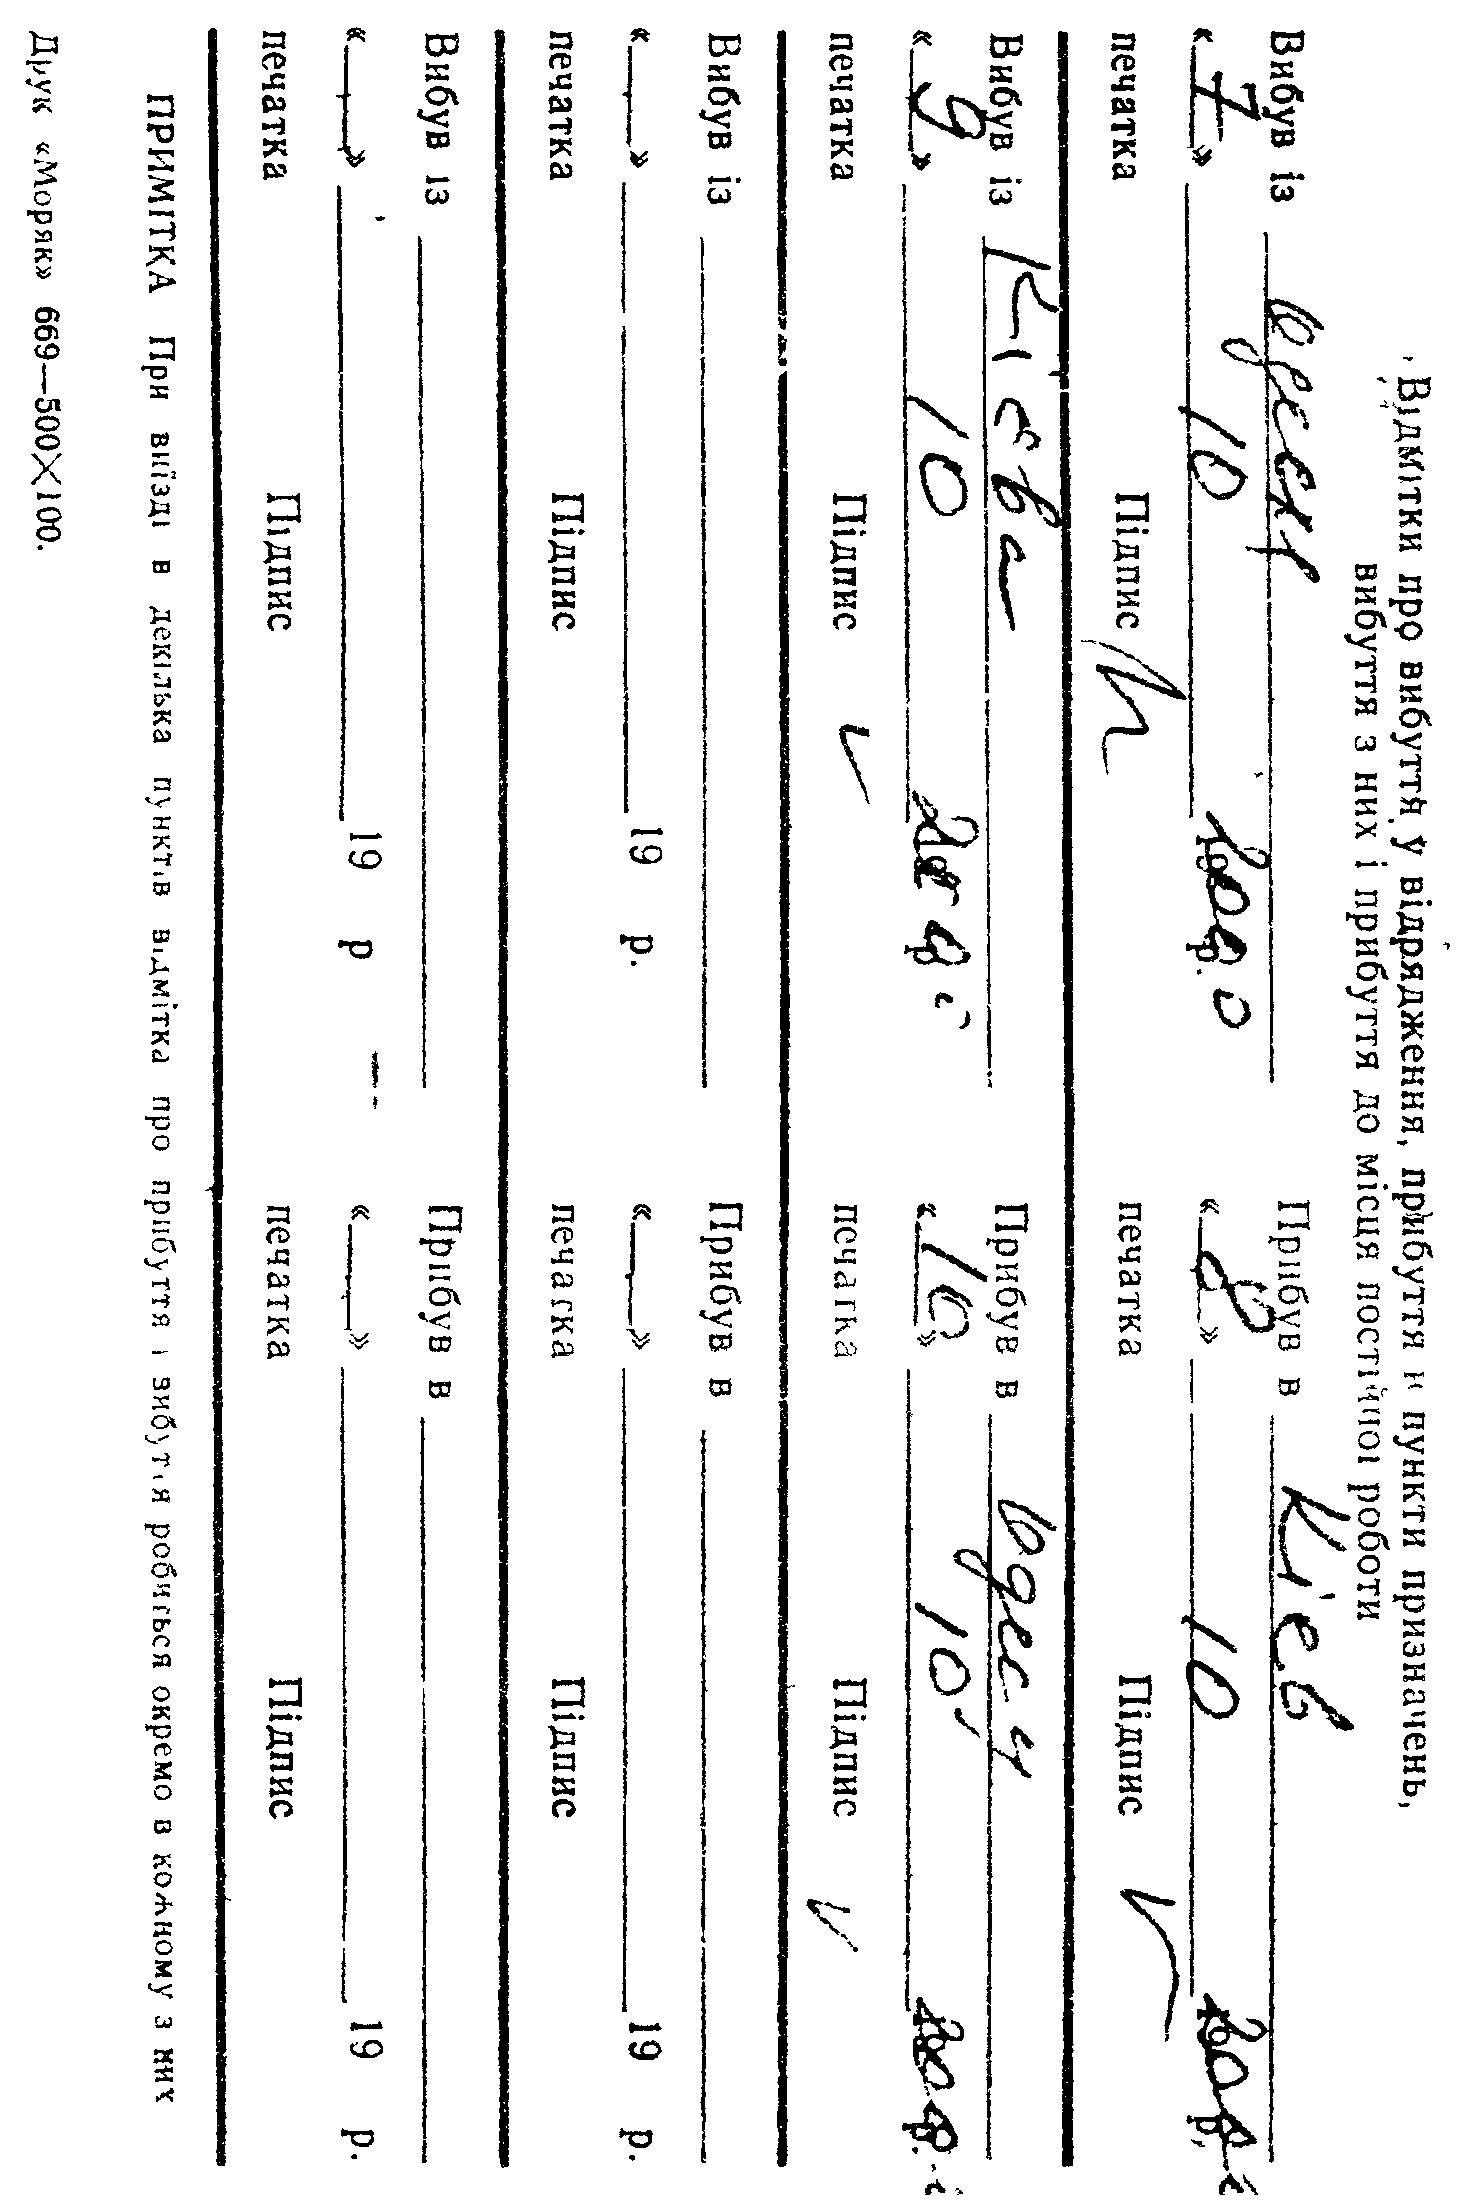 Відмітки про вибуття у відрядження, прибуття в пункти призначень,
вибуття з них і прибуття до місця постійної роботи
Вибув із Одеси Прибув в Київ
« 7 » 10 2000 р. « 8 » 10 200 р.
печатка Підпис печатка Підпис
Вибув із Києва Прибув в Одесу
« 9 » 10 р. « 10 » 10 р.
печатка Підпис печатка Підпис
Вибув із Прибув в
« » 19 р. « » 19 р.
печатка Підпис печатка Підпис
Вибув із Прибув в
« » 19 р « » 19 р.
печатка Підпис печатка Підпис
ПРИМІТКА При виїзді в декілька пунктів відмітка про прибуття і вибуття робиться окремо в кожному з них
Друк «Моряк» 669—500×100.